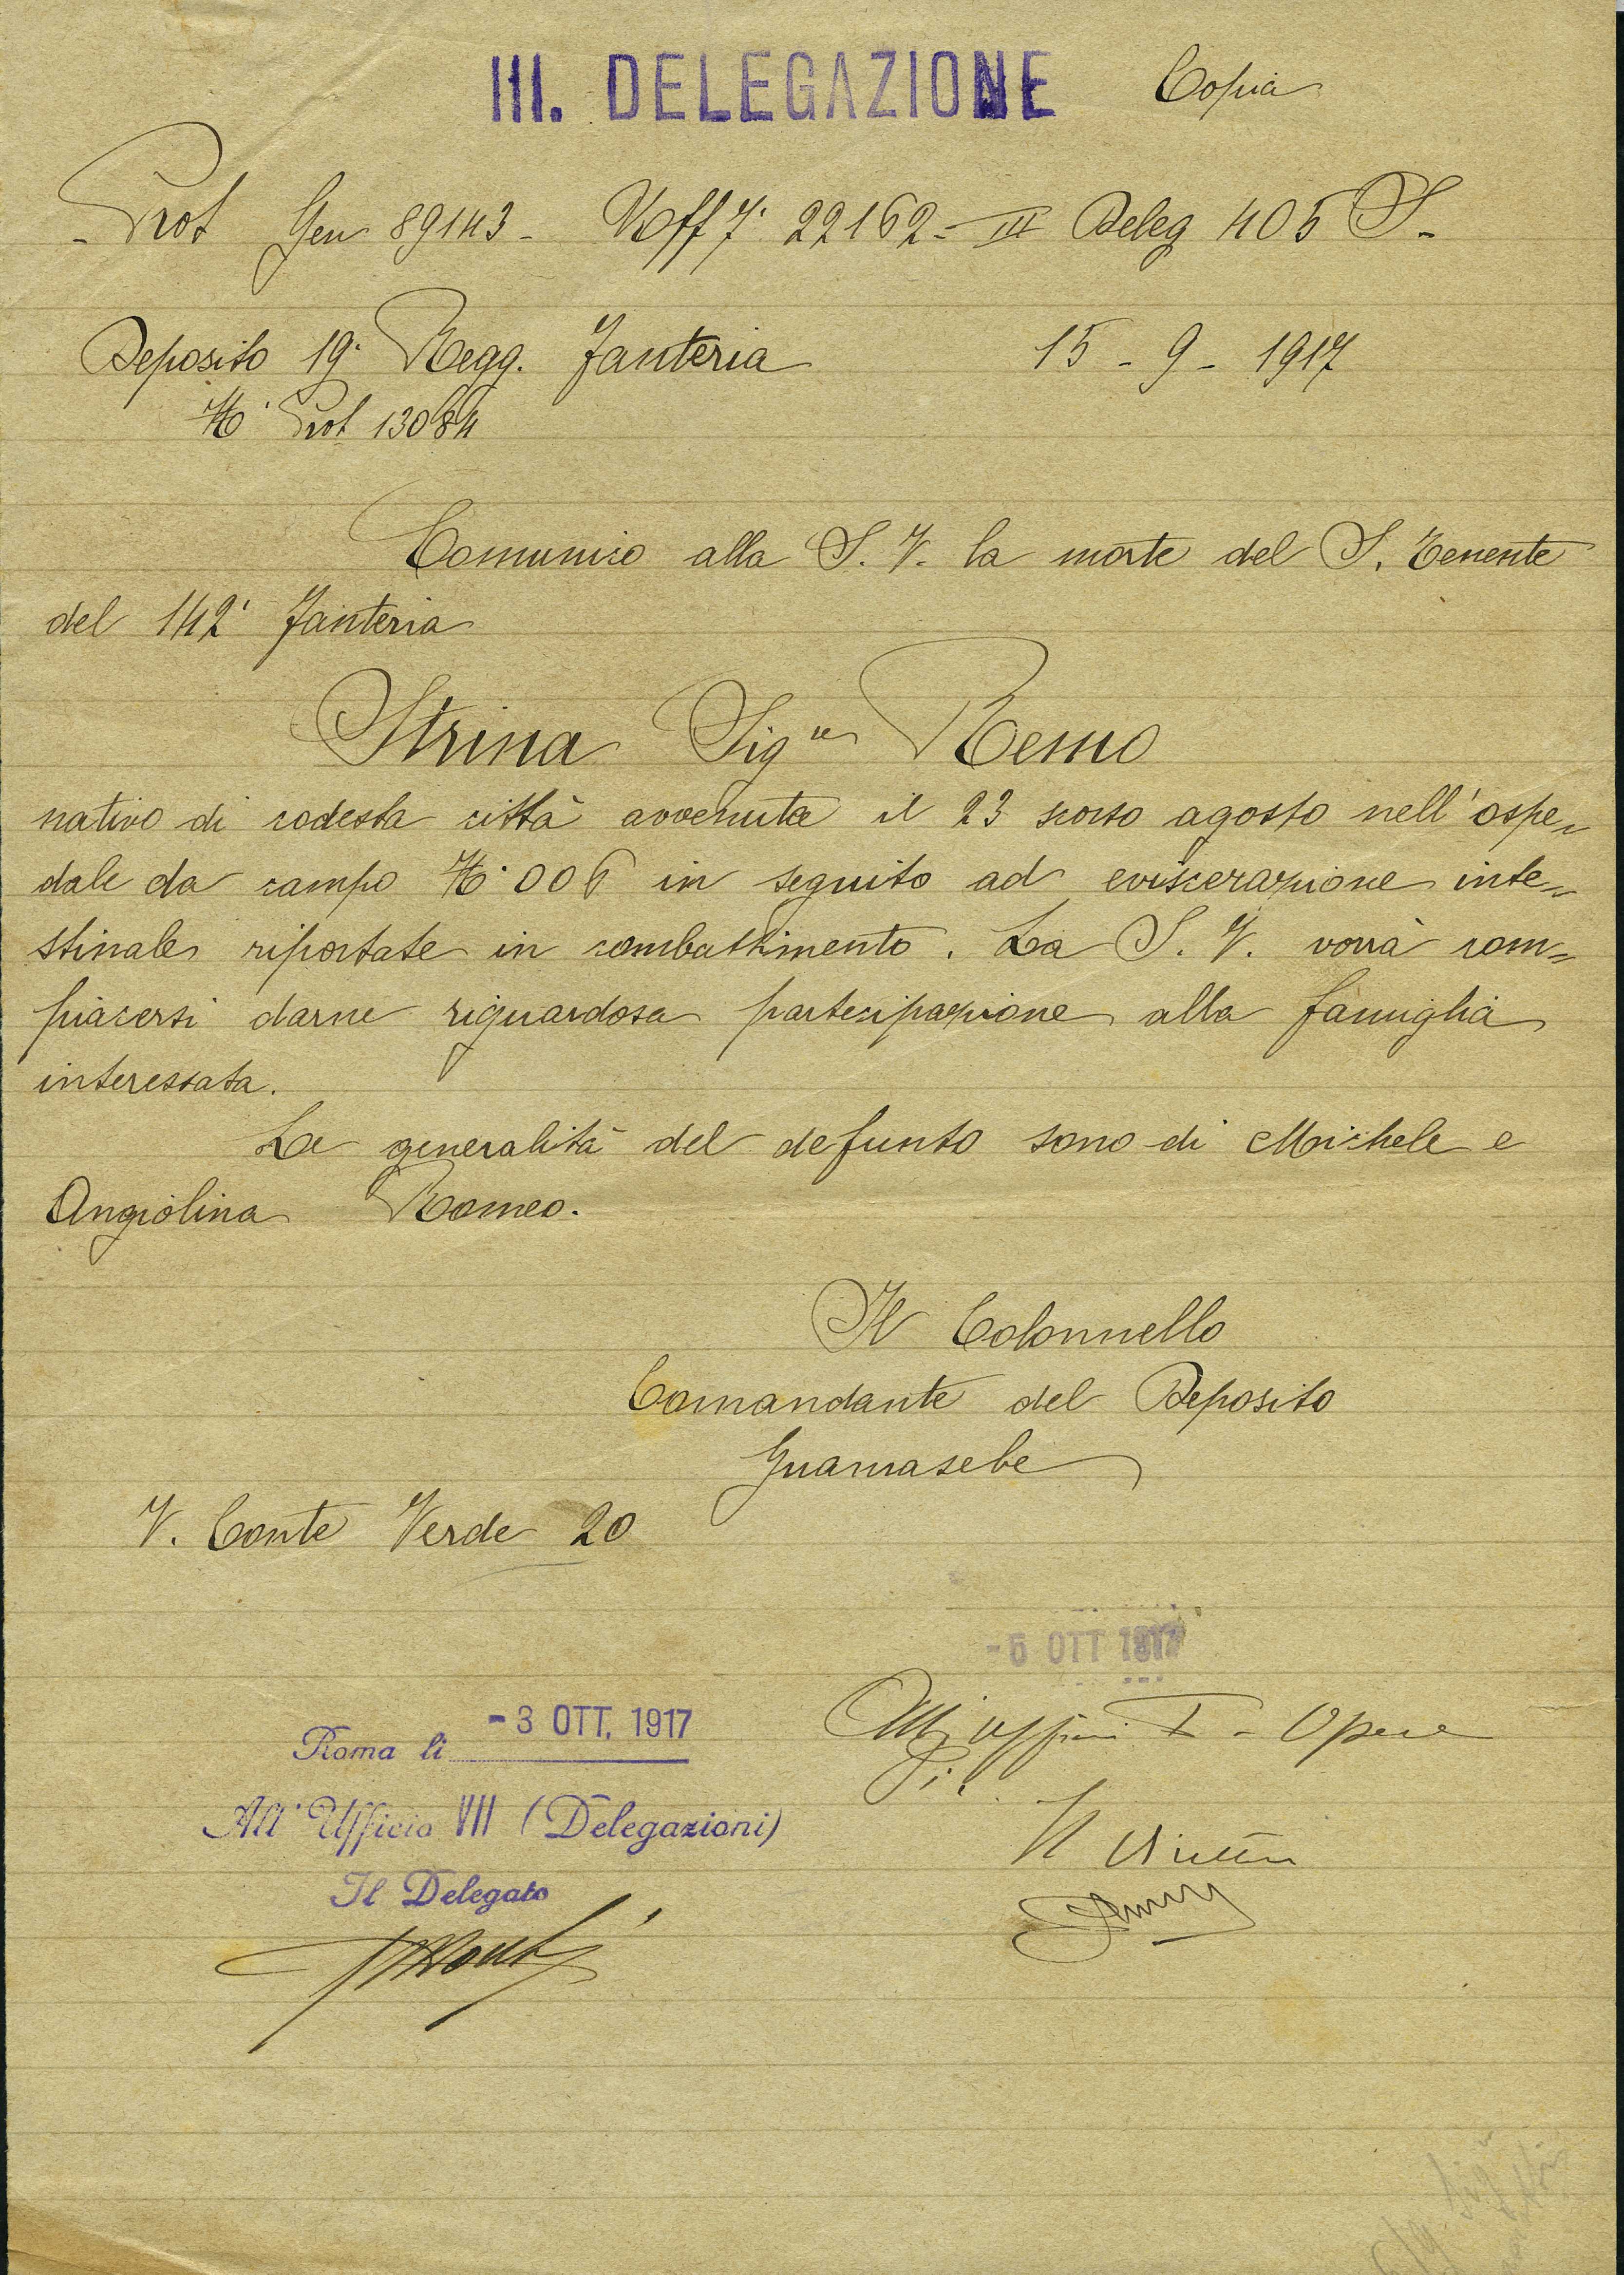 III. DELEGAZIONE Copia
- Prot Gen 89143 - Uff 7° 22162 - III Deleg 405 S -
Deposito 19° Regg. Fanteria 15 - 9 - 1917
N° Prot 13084
Comunico alla S. V. la morte del S. Tenente
del 142° Fanteria
Strina Sig.re Remo
nativo di codesta città avvenuta il 23 scorso agosto nell'ospe=
dale da campo N° 006 in seguito ad eviscerazione inte=
stinale riportate in combattimento. La S. V. vorrà com=
piacersi darne riguardosa partecipazione alla famiglia
interessata.
Le generalità del defunto sono di Michele e
Angiolina Romeo.
Il Colonnello
Comandante del Deposito
V. Conte Verde 20
- 5 OTT 1917
Roma li - 3 OTT. 1917
All'Ufficio VII (Delegazioni)
Il Delegato